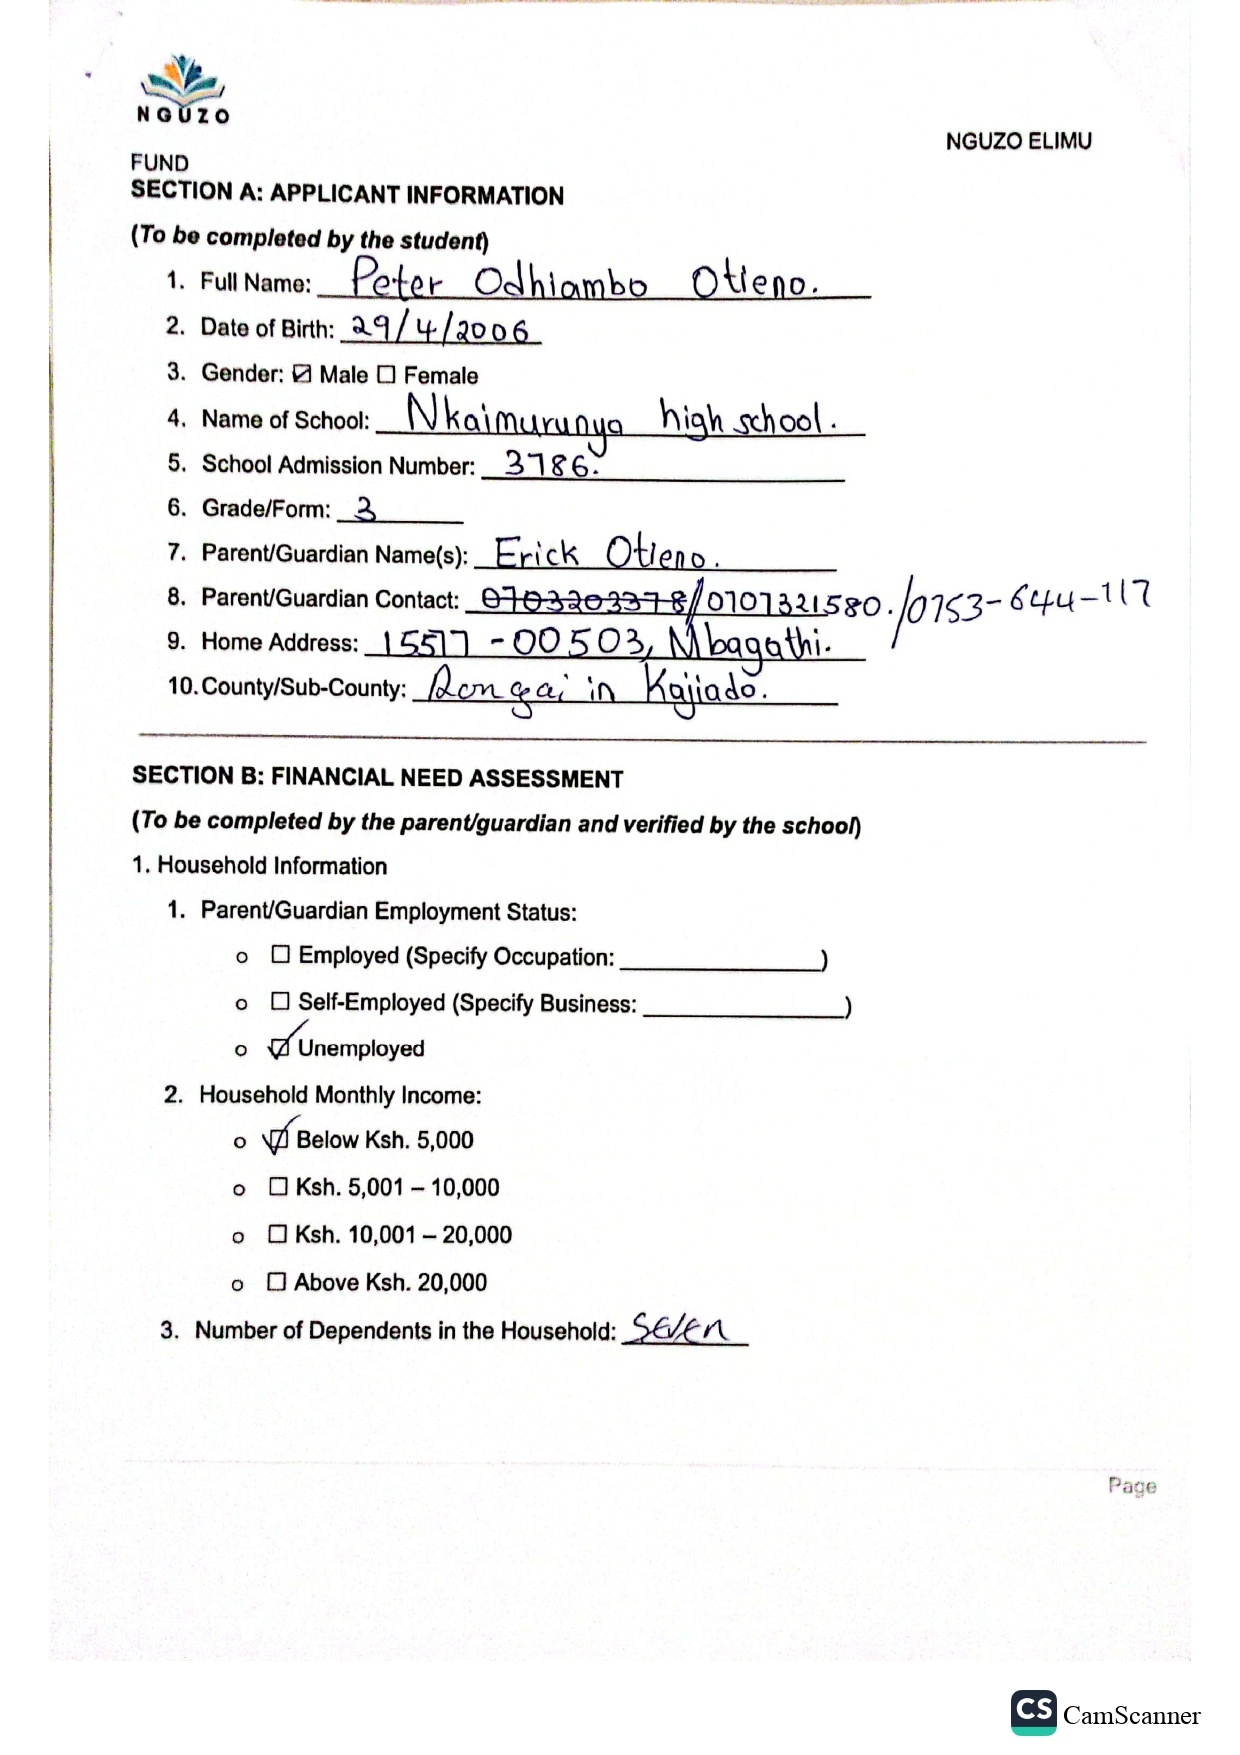 NGUZO
NGUZO ELIMU
FUND
SECTION A: APPLICANT INFORMATION
(To be completed by the student)
1. Full Name: Peter Odhiambo Otieno.
2. Date of Birth: 29/4/2006
3. Gender: ☑ Male ☐ Female
4. Name of School: Nkaimurunya high school.
5. School Admission Number: 3786.
6. Grade/Form: 3
7. Parent/Guardian Name(s): Erick Otieno.
8. Parent/Guardian Contact: 0703203378/0707321580./0753-644-117
9. Home Address: 15517 -00503, Mbagathi.
10. County/Sub-County: Rongai in Kajiado.
SECTION B: FINANCIAL NEED ASSESSMENT
(To be completed by the parent/guardian and verified by the school)
1. Household Information
1. Parent/Guardian Employment Status:
o ☐ Employed (Specify Occupation: ______________)
o ☐ Self-Employed (Specify Business: ______________)
o ☑ Unemployed
2. Household Monthly Income:
o ☑ Below Ksh. 5,000
o ☐ Ksh. 5,001 – 10,000
o ☐ Ksh. 10,001 – 20,000
o ☐ Above Ksh. 20,000
3. Number of Dependents in the Household: Seven
Page
CS CamScanner